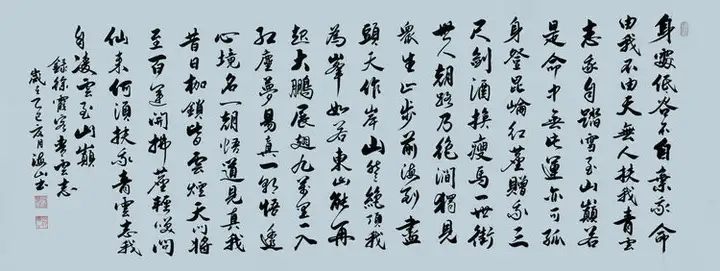 身處低谷不自棄我命
由我不由天無人扶我青雲
志我自踏雪至山巔若
是命中無此運亦可孤
身登昆崙紅塵贈我三
尺劍酒換瘦馬一世街
世人朝路乃絕澗獨見
眾生止步前海到盡
頭天作岸山登絕頂我
為峯如若東山能再
起大鵬展翅九萬里一入
紅塵夢易真一朝悟透
心境名一朝悟道見真我
昔日枷鎖皆雲煙天門將
至百運開拂塵輕嘆問
仙來何須扶我青雲志我
自凌雲至山巔
錄徐霞客青雲志
乙巳六月海山書